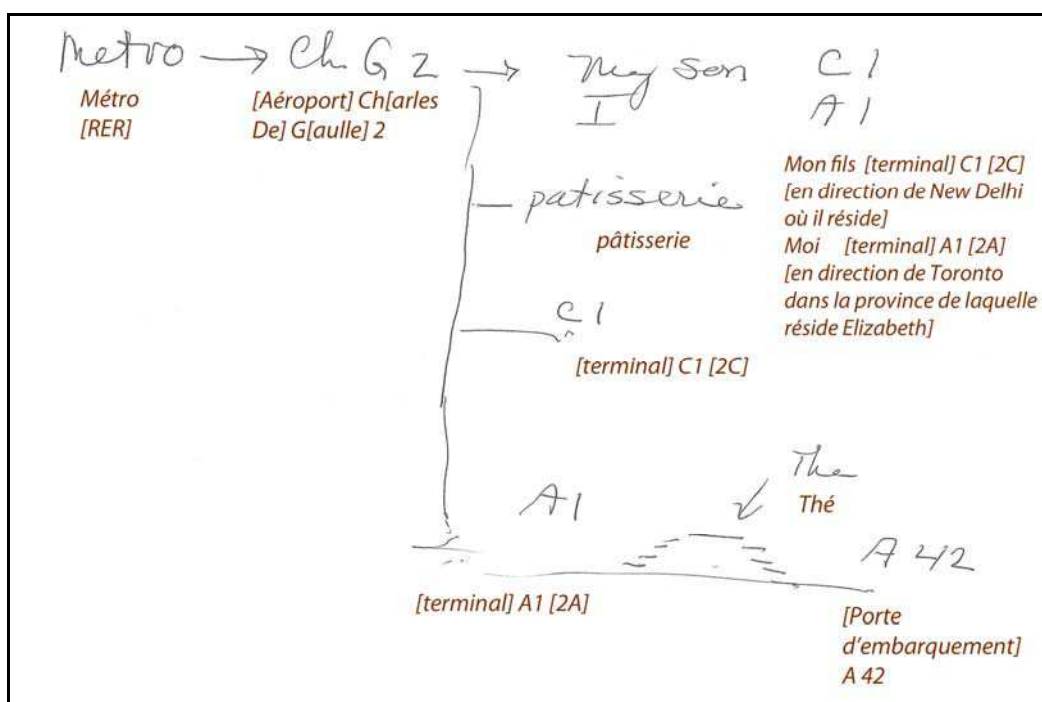 Metro → Ch G 2 → My son C 1
I A 1
Métro
[RER]
[Aéroport] Ch[arles
De] G[aulle] 2
Mon fils [terminal] C1 [2C]
[en direction de New Delhi
où il réside]
Moi [terminal] A1 [2A]
[en direction de Toronto
dans la province de laquelle
réside Elizabeth]
patisserie
pâtisserie
C 1
[terminal] C1 [2C]
The
Thé
A 1
A 42
[terminal] A1 [2A]
[Porte
d'embarquement]
A 42